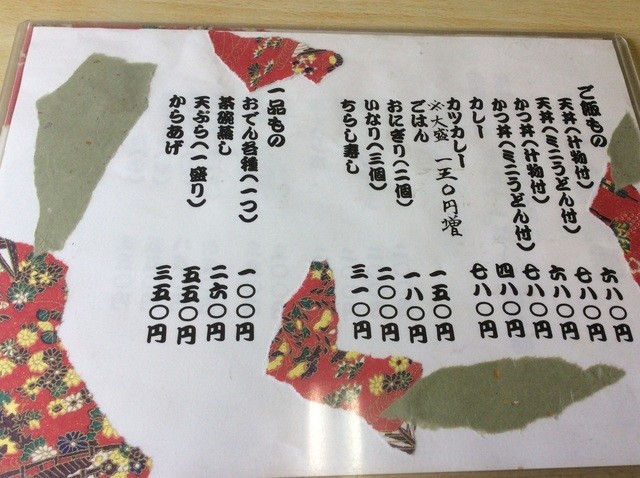 ご飯もの
天丼(汁物付) 六八〇円
天丼(ミニうどん付) 七八〇円
かつ丼(汁物付) 六八〇円
かつ丼(ミニうどん付) 七八〇円
カレー 四八〇円
カツカレー 七八〇円
※大盛 一五〇円増
ごはん 一五〇円
おにぎり(二個) 一八〇円
いなり(三個) 二〇〇円
ちらし寿し 三一〇円
一品もの
おでん各種(一つ) 一〇〇円
茶碗蒸し 二六〇円
天ぷら(一盛り) 五五〇円
からあげ 三五〇円